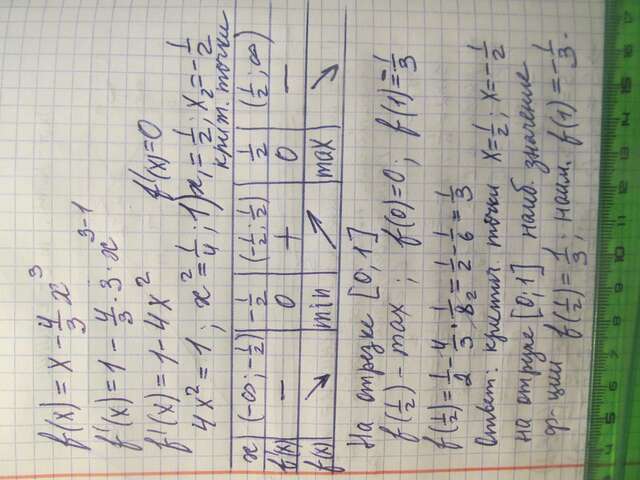 f(x) = x - 4/3 x³
f'(x) = 1 - 4/3 · 3 · x³⁻¹
f'(x) = 1 - 4x² f'(x) = 0
4x² = 1; x² = 1/4; 1) x₁ = 1/2; x₂ = -1/2
крит. точки
x | (-∞; -1/2) | -1/2 | (-1/2; 1/2) | 1/2 | (1/2; ∞)
f'(x) | - | 0 | + | 0 | -
f(x) | ↘ | min | ↗ | max | ↘
На отрезке [0; 1]
f(1/2) - max; f(0) = 0; f(1) = -1/3
f(1/2) = 1/2 - 4/3 · 1/8₂ = 1/2 - 1/6 = 1/3
Ответ: критич. точки x = 1/2; x = -1/2
на отрезке [0; 1] наиб. значение
ф-ции f(1/2) = 1/3; наим. f(1) = -1/3.